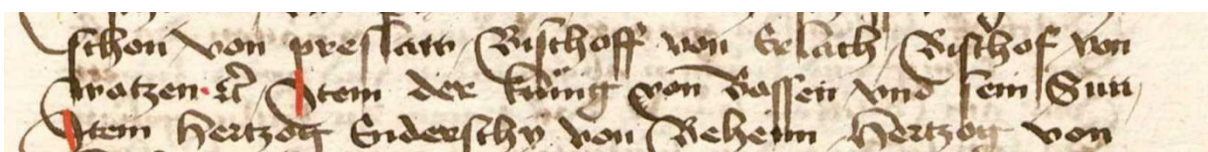 schon von preslaw Bischoff von Erlach Bischof von
watzen · etc̃ Item der kunig von Bossen vnd sein Sun
Item Hertzog Siderschy von Behem Hertzog von